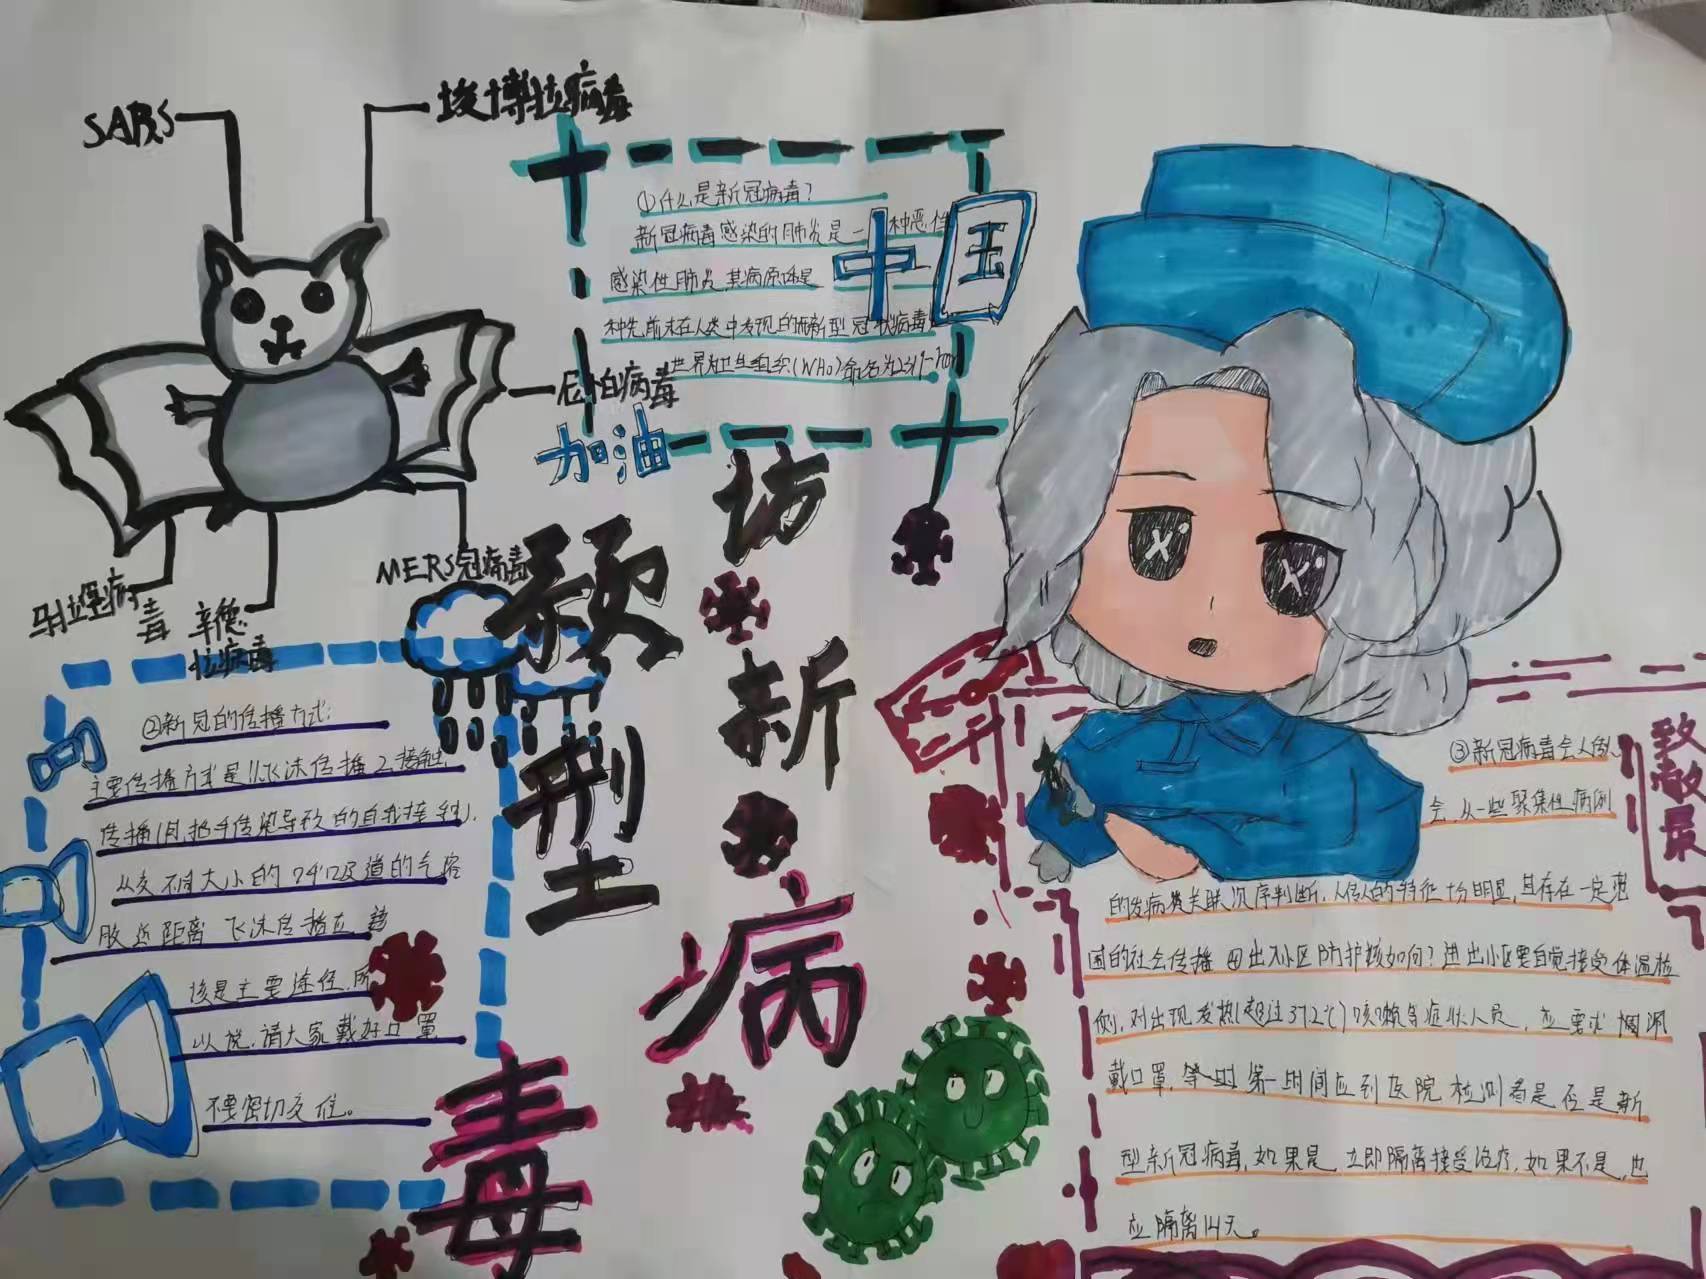 SARS
埃博拉病毒
尼怕病毒
MERS冠病毒
辛德
病毒
①什么是新冠病毒?
新冠病毒感染的肺炎是一种恶性
感染性肺炎,其病原体是
种先前未在人类中发现的新型冠状病毒,
世界卫生组织(WHO)命名为2019-
中国
加油
预坊新型
病毒
②新冠的传播方式:
主要传播方式是1.飞沫传播2.接触
传播(用把手传染导致的自我接种).
大小的
的气溶
胶近距离飞沫传播应该
该是主要途径,所
以说,请大家戴好口罩,
不要密切交往。
③新冠病毒会人传人
会,从一些聚集性病例
的发病关联次序判断,人传人的特征十分明显,且存在一定范
围的社会传播④出入小区防护该如何?进出小区要自觉接受体温检
测,对出现发热(超过37.2℃)咳嗽等症状人员,应要求
戴口罩,等时第一时间应到医院检测看是否是新
型新冠病毒,如果是,立即隔离接受治疗,如果不是,也
应隔离14天。
致敬最